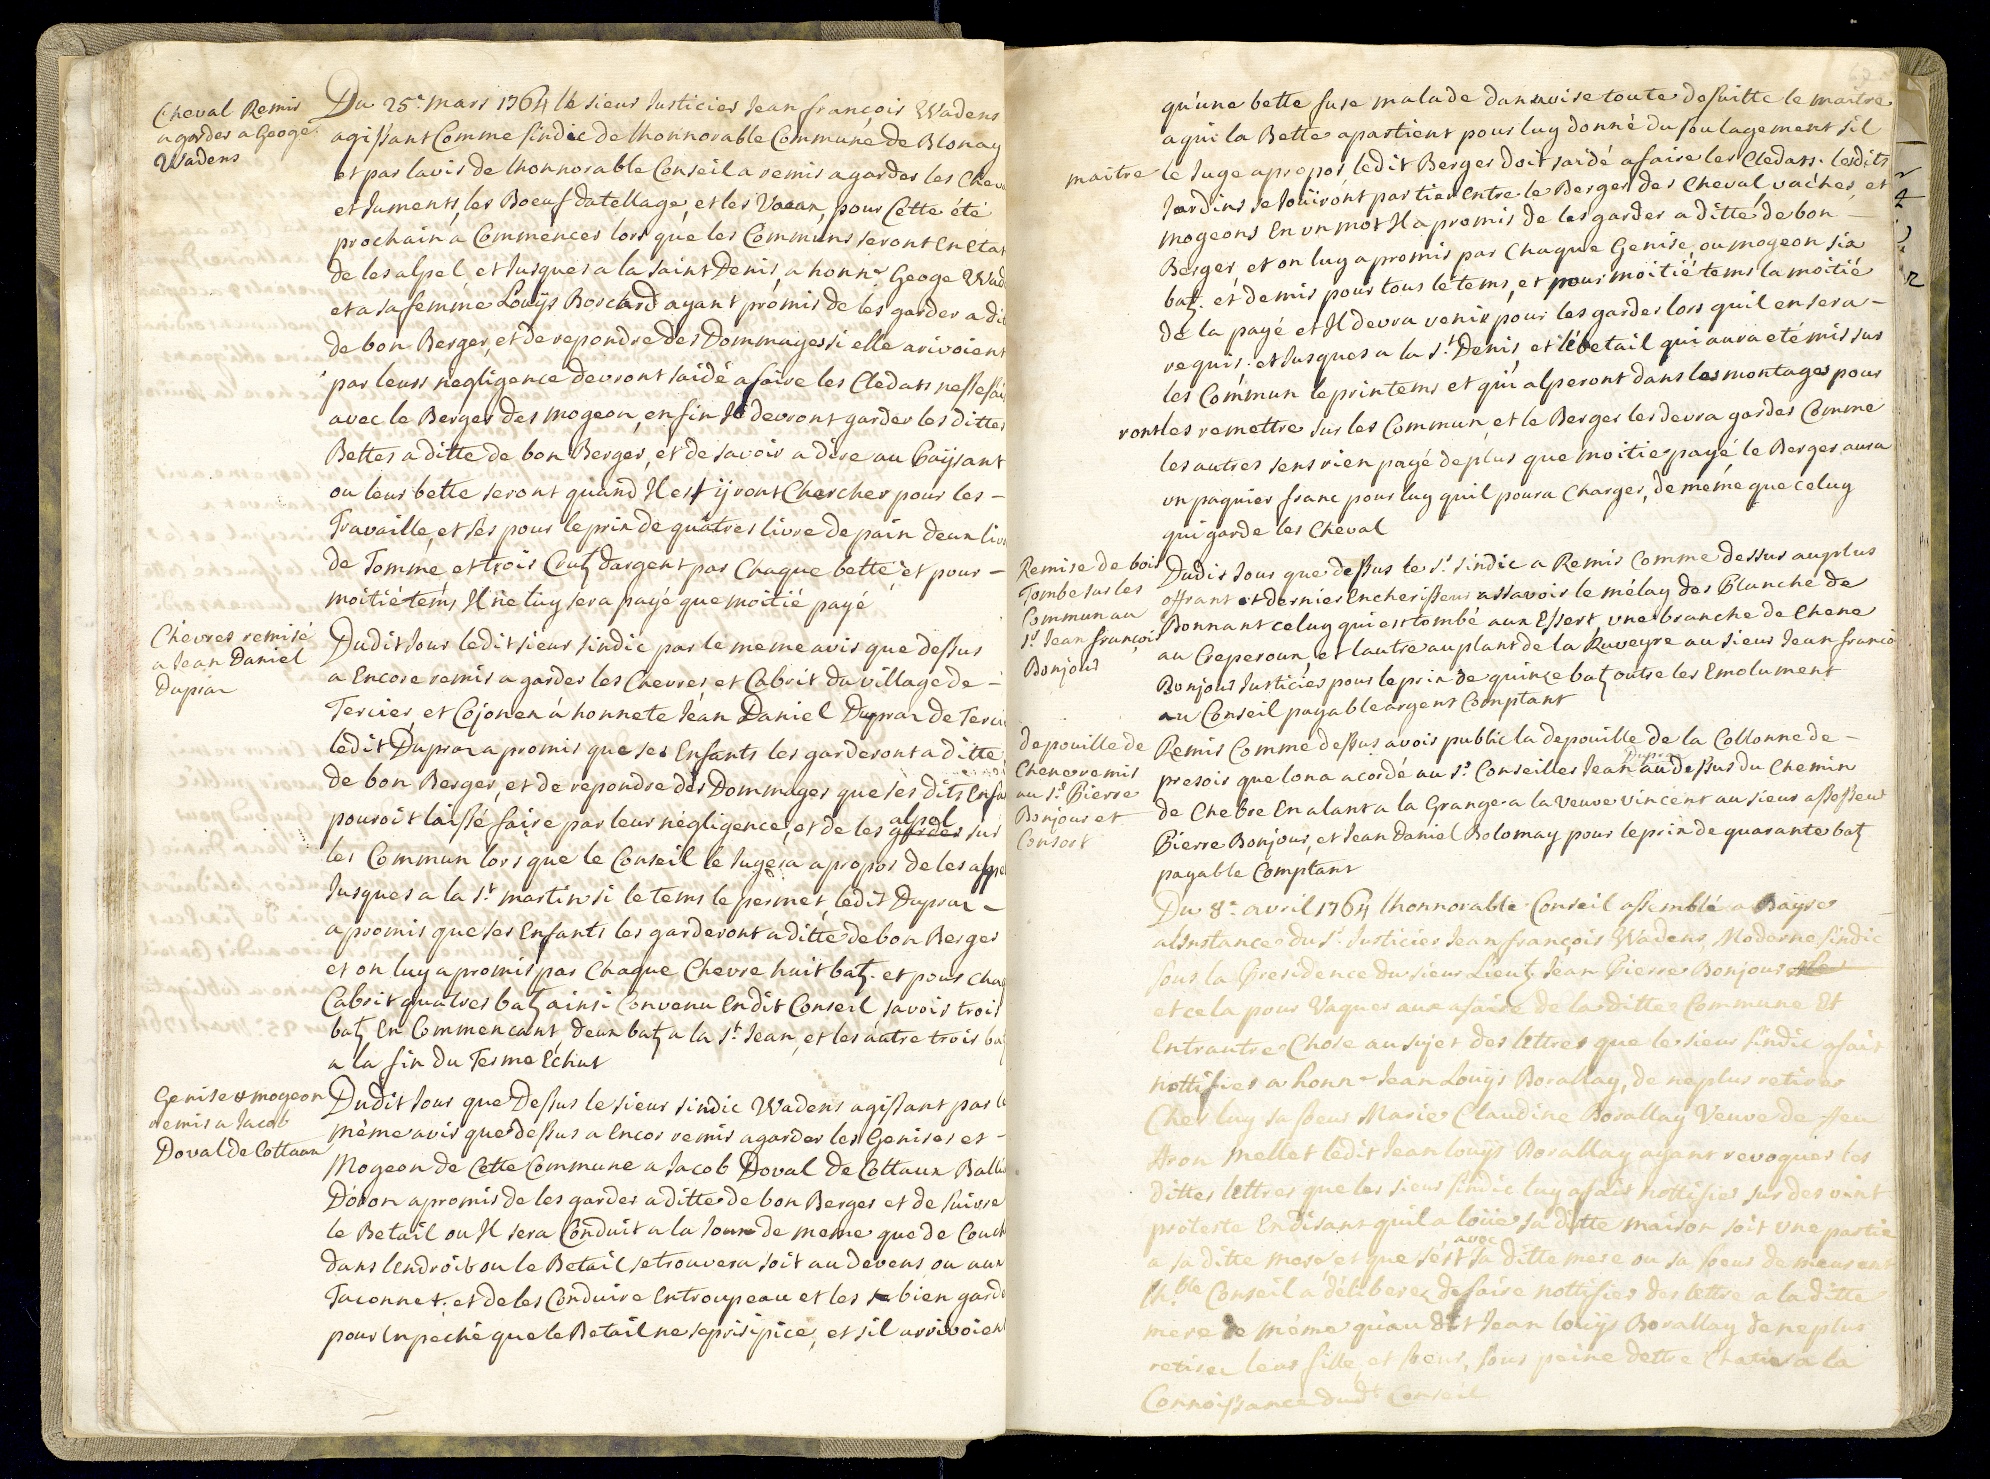 Cheval Remis
a garder a George
Wadens
Du 25e. mars 1764 le sieur Justicier Jean françois Wadens
agissant Comme sindic de lhonnorable Commune de Blonay
et par lavis de lhonnorable Conseil a remis a garder les Chev
et Juments, les Boeuf datellage, et les Veaux, pour Cette été
prochain a Commencer lors que les Communs seront en Etat
de les alpel et Jusques a la saint Denis a honne. Geoge Wad
et a sa femme Louÿs Borcard ayant promis de les garder a di
de bon Berger, et de repondre des Dommages si elle arivoient
par leurs negligence devront saidé a faire les Cledars nessesai
avec le Berger des mogeon, enfin Il devront garder les dittes
Bettes a ditte de bon Berger, et de savoir a dire au Païsant
ou leur bette seront quand Il est ÿ vont Chercher pour les -
Travaille, et ses pour le prix de quatres livre de pain deux livr
de Tomme, et trois Crutz dargent par Chaque bette et pour -
moitié tems Il ne luy sera payé que moitié payé
Chevres remise
a Jean Daniel
Duprax
Dudit Jour ledit sieur sindic par le meme avis que dessus
a Encore remis a garder les Chevres et Cabrit du village de -
Tercier, et Cojonex a honnete Jean Daniel Duprax de Terci
ledit Duprax a promis que ses Enfants les garderont a ditte
de bon Berger, et de repondre des Dommages que ses dits Enfa
pouroit laissé faire par leur négligence, et de les garder alpel sur
les Commun lors que le Conseil le Jugera a propos de les alpe
Jusques a la St. martin si le tems le permet, ledit Duprax -
a promis que ses Enfants les garderont a ditte de bon Berger
et on luy a promis par Chaque Chevre huit batz. et pour cha
Cabrit quatres batz ainsi Convenu En dit Conseil savoir trois
batz En Commencant, deux batz a la St. Jean, et les autre trois ba
a la fin du Terme Echut
Genise & mogeon
remis a Jacob
Doval de Cottaux
Dudit Jour que Dessus le sieur sindic Wadens agissant par le
même avis que dessus a Encor remis a garder les Genises et -
Mogeon de Cette Commune a Jacob Doval de Cottaux Balli
Doron a promis de les garder a ditte de bon Berger et de suivre
le Betail ou Il sera Conduit a la Joux de meme que de Couch
dans lendroit ou le Betail se trouvera soit au devens, ou aux
Jaconnet. et de les Conduire En troupeau et les bien garde
pour Enpeché que le Betail ne se prisipice, et sil arrivoient
qu'une bette fuse malade dan avise toute desuitte le maitre
a qui la Bette apartient pour luy donné du soulagement sil
maitre le Juge a propos ledit Berger doit saidé a faire les Cledars. lesdits
Jardins se Joüiront par tier Entre le Berger des Cheval, vaches, et
mogeons En un mot Il a promis de les garder a ditte de bon -
Berger, et on luy a promis par Chaque Genise, ou mogeon six
batz. et demis pour tous le tems, et pour moitié tems la moitié
de la payé et Il devra venir pour les garder lors quil en sera -
requis. et Jusques a la St. Denis, et le betail qui aura eté mis sur
les Commun le printems et qui alperont dans les montages pour
ront les remettre sur les Commun, et le Berger les devra garder Comme
les autres sens rien payé de plus que moitier payé le Berger aura
un paquier franc pour luy quil poura Charger, de même que celuy
qui garde les Cheval
Remise de bois
Tombe sur les
Commun au
Sr. Jean françois
Bonjour
Dudit Jour que dessus le Sr. sindic a Remis Comme dessus au plus
offrant et dernier Encherisseur assavoir le mélay des Planche de
Bonnant celuy qui est tombé aux Essert, une branche de Chene
au Creperoux, et lautre au plant de la Ruveyre au sieur Jean franco
Bonjour Justicier pour le prix de quinze batz outre les Emolument
au Conseil payable argent Comptant
depouille de
Chene remis
au Sr. Pierre
Bonjour et
Consort
Remis Comme dessus avoir public la depouille de la Collonne de -
presoir que lon a acordé au Sr. Conseiller Jean Duprax au dessus du Chemin
de Chebre En alant a la Grange a la veuve vincent au sieur assesseur
Pierre Bonjour, et Jean Daniel Bolomay pour le prix de quarante batz
payable Comptant
Du 8e. avril 1764 lhonnorable Conseil assemblé a Bayse
a linstance du Sr. Justicier Jean françois Wadens, Moderne sindic
sous la Presidence du sieur Lieutz. Jean Pierre Bonjour
et cela pour Vaquer aux afaire de la ditte Commune Et
Entrautre Chose au sujet des lettres que le sieur sindic a fait
nottifier a honne. Jean Louÿs Borallay, de ne plus retirer
Cher luy sa soeur Marie Claudine Borallay Veuve de feu
Aron Mellet ledit Jean louÿs Borallay ayant revoquer les
dittes lettres que les sieur sindic luy a fait nottifier sur des vint
proteste En disant quil a loüe sa ditte maison soit une partie
a sa ditte mere et que sest avec sa ditte mere ou sa soeur demeurent
lh.ble Conseil a délibere de faire nottifier des lettre a la ditte
mere de même qu'au dit Jean louÿs Borallay de ne plus
retirer leur fille, et soeur, sous peine dettre Chatier a la
Connoissance dudt. Conseil